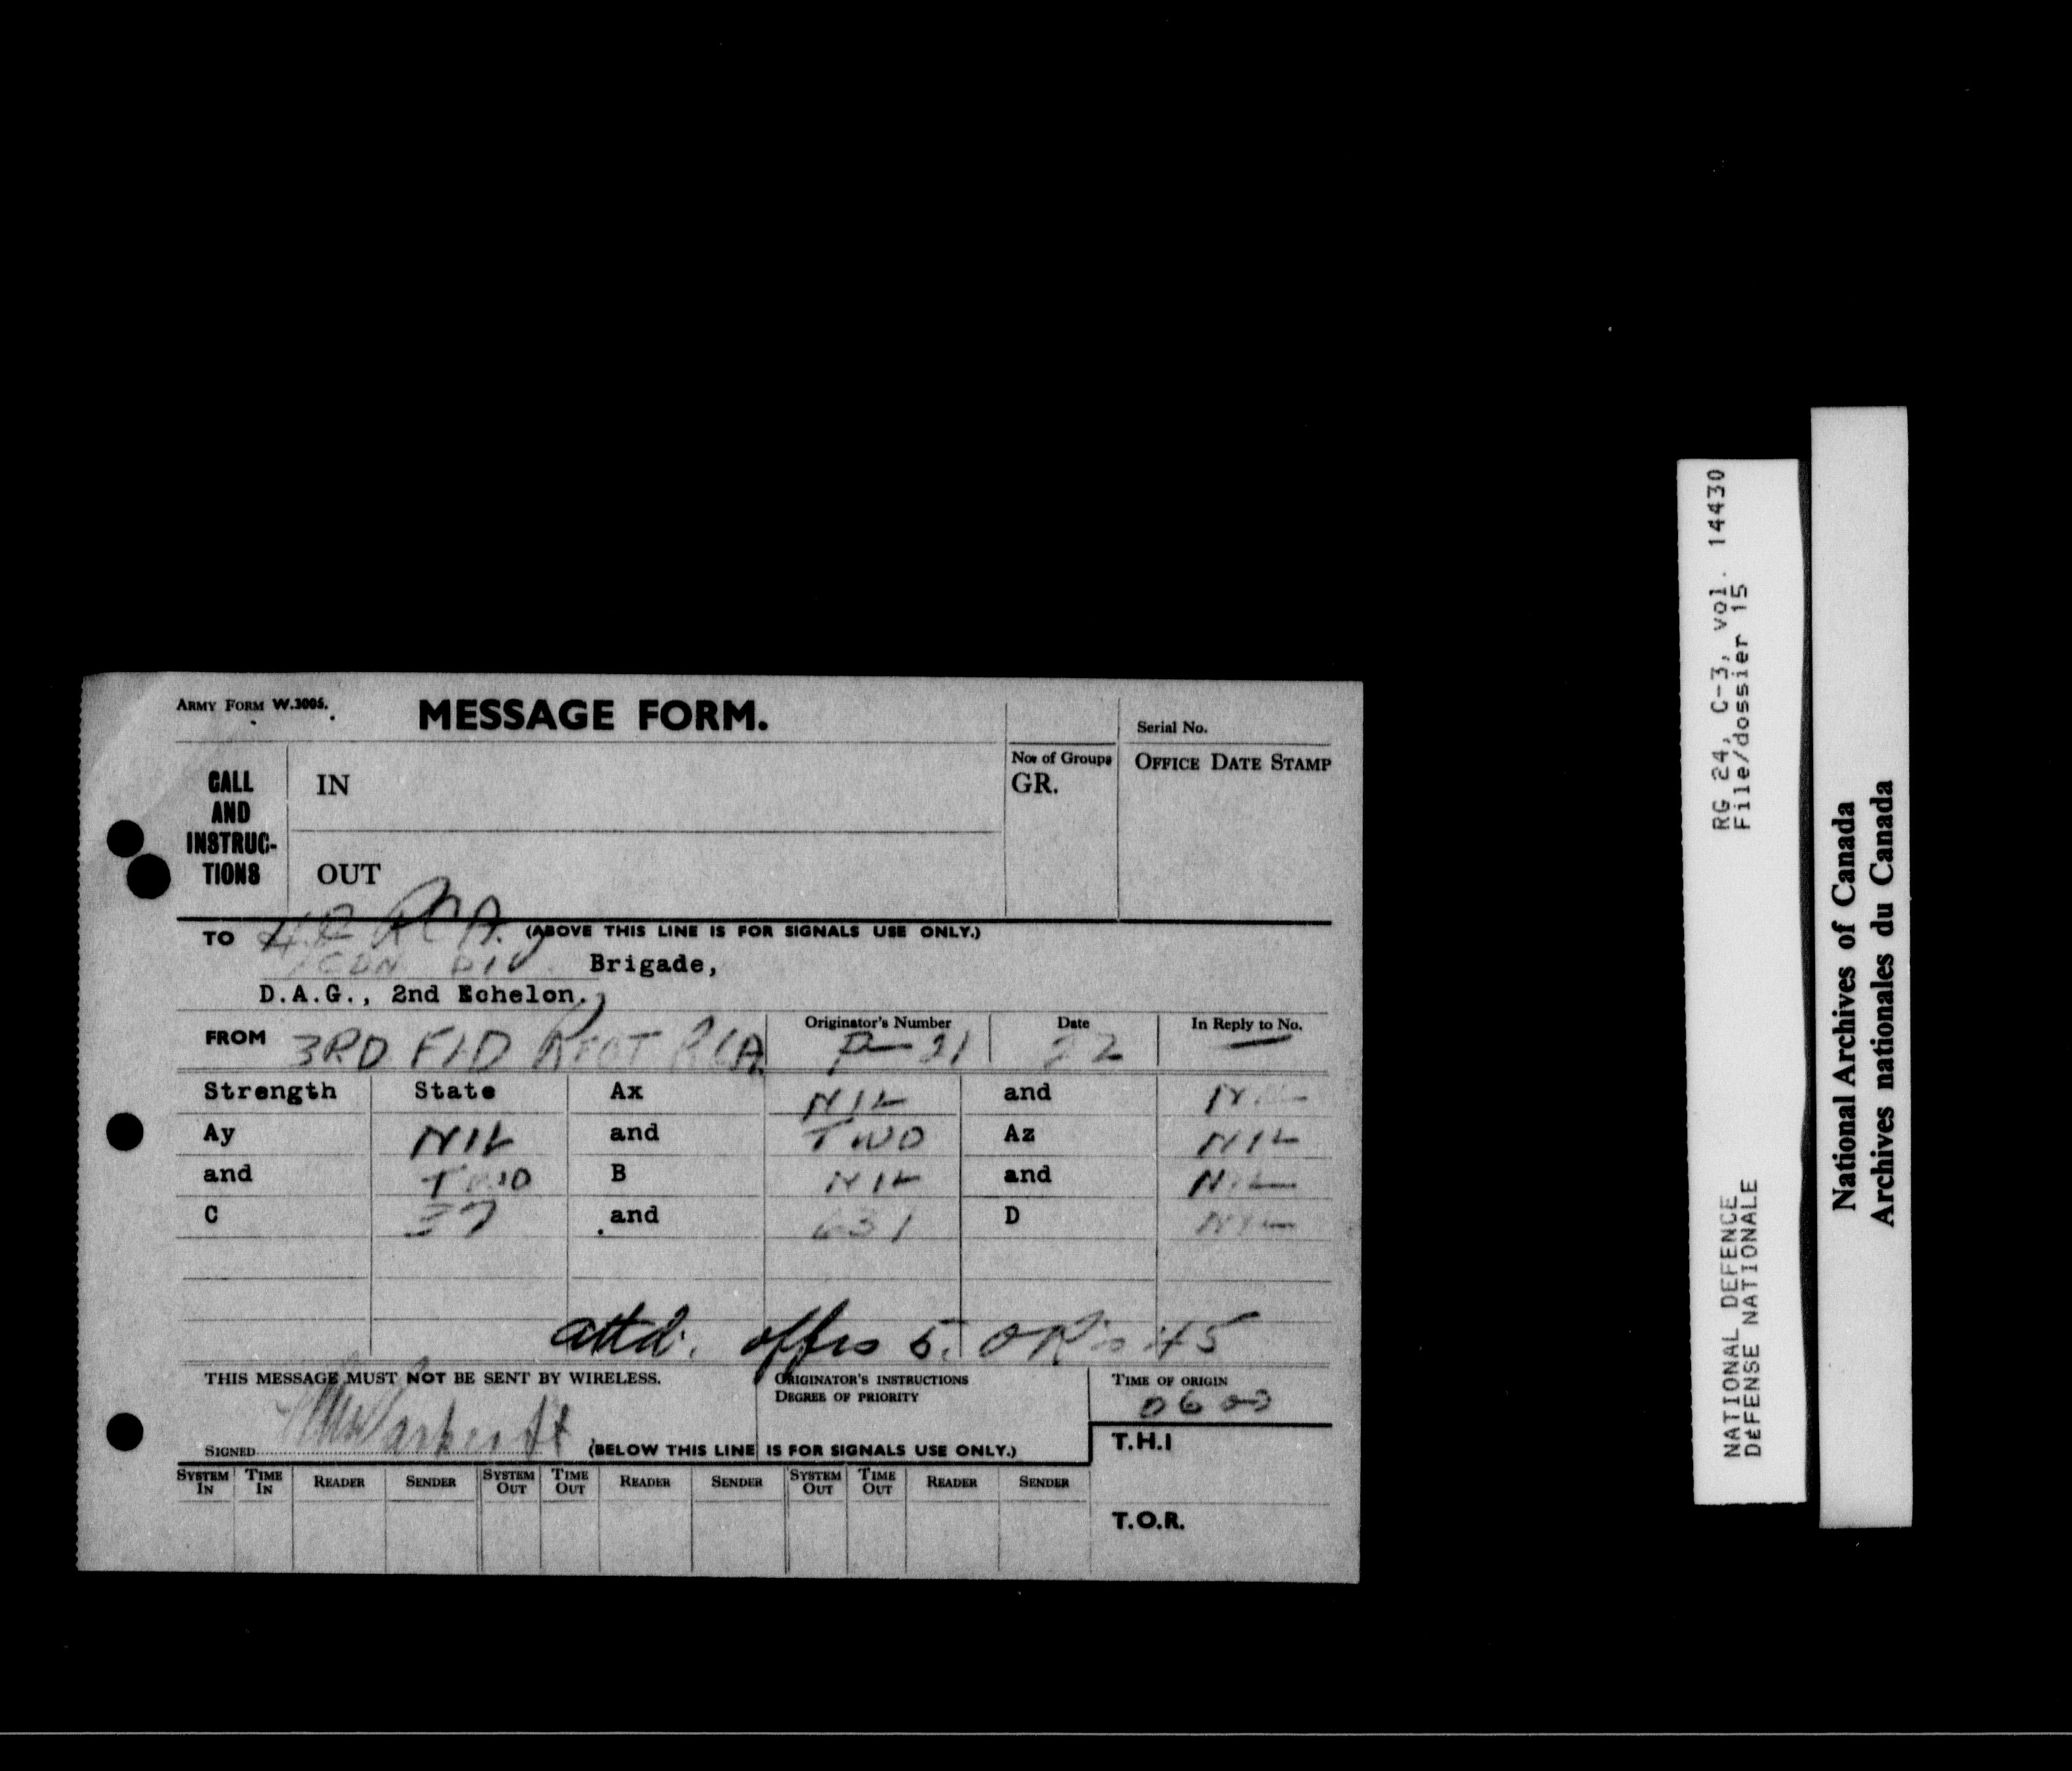 ARMY FORM W.3005.
MESSAGE FORM.
Serial No.
CALL AND INSTRUC-TIONS
IN
OUT
Nos of Groups
GR.
OFFICE DATE STAMP
(ABOVE THIS LINE IS FOR SIGNALS USE ONLY.)
TO RCA.
DIV. Brigade,
D.A.G., 2nd Echelon.
FROM 3RD FLD REGT RCA
Originator's Number
Date 22
In Reply to No. —
Strength State Ax NIL and NIL
Ay NIL and TWO Az NIL
and TWO B NIL and NIL
C 37 and 631 D NIL
attd. offrs 5. OR's 45
THIS MESSAGE MUST NOT BE SENT BY WIRELESS.
ORIGINATOR'S INSTRUCTIONS
DEGREE OF PRIORITY
TIME OF ORIGIN
0600
SIGNED
(BELOW THIS LINE IS FOR SIGNALS USE ONLY.)
T.H.I
SYSTEM IN TIME IN READER SENDER SYSTEM OUT TIME OUT READER SENDER SYSTEM OUT TIME OUT READER SENDER
T.O.R.
RG 24, C-3, vol. 14430
File/dossier 15
NATIONAL DEFENCE
DÉFENSE NATIONALE
National Archives of Canada
Archives nationales du Canada